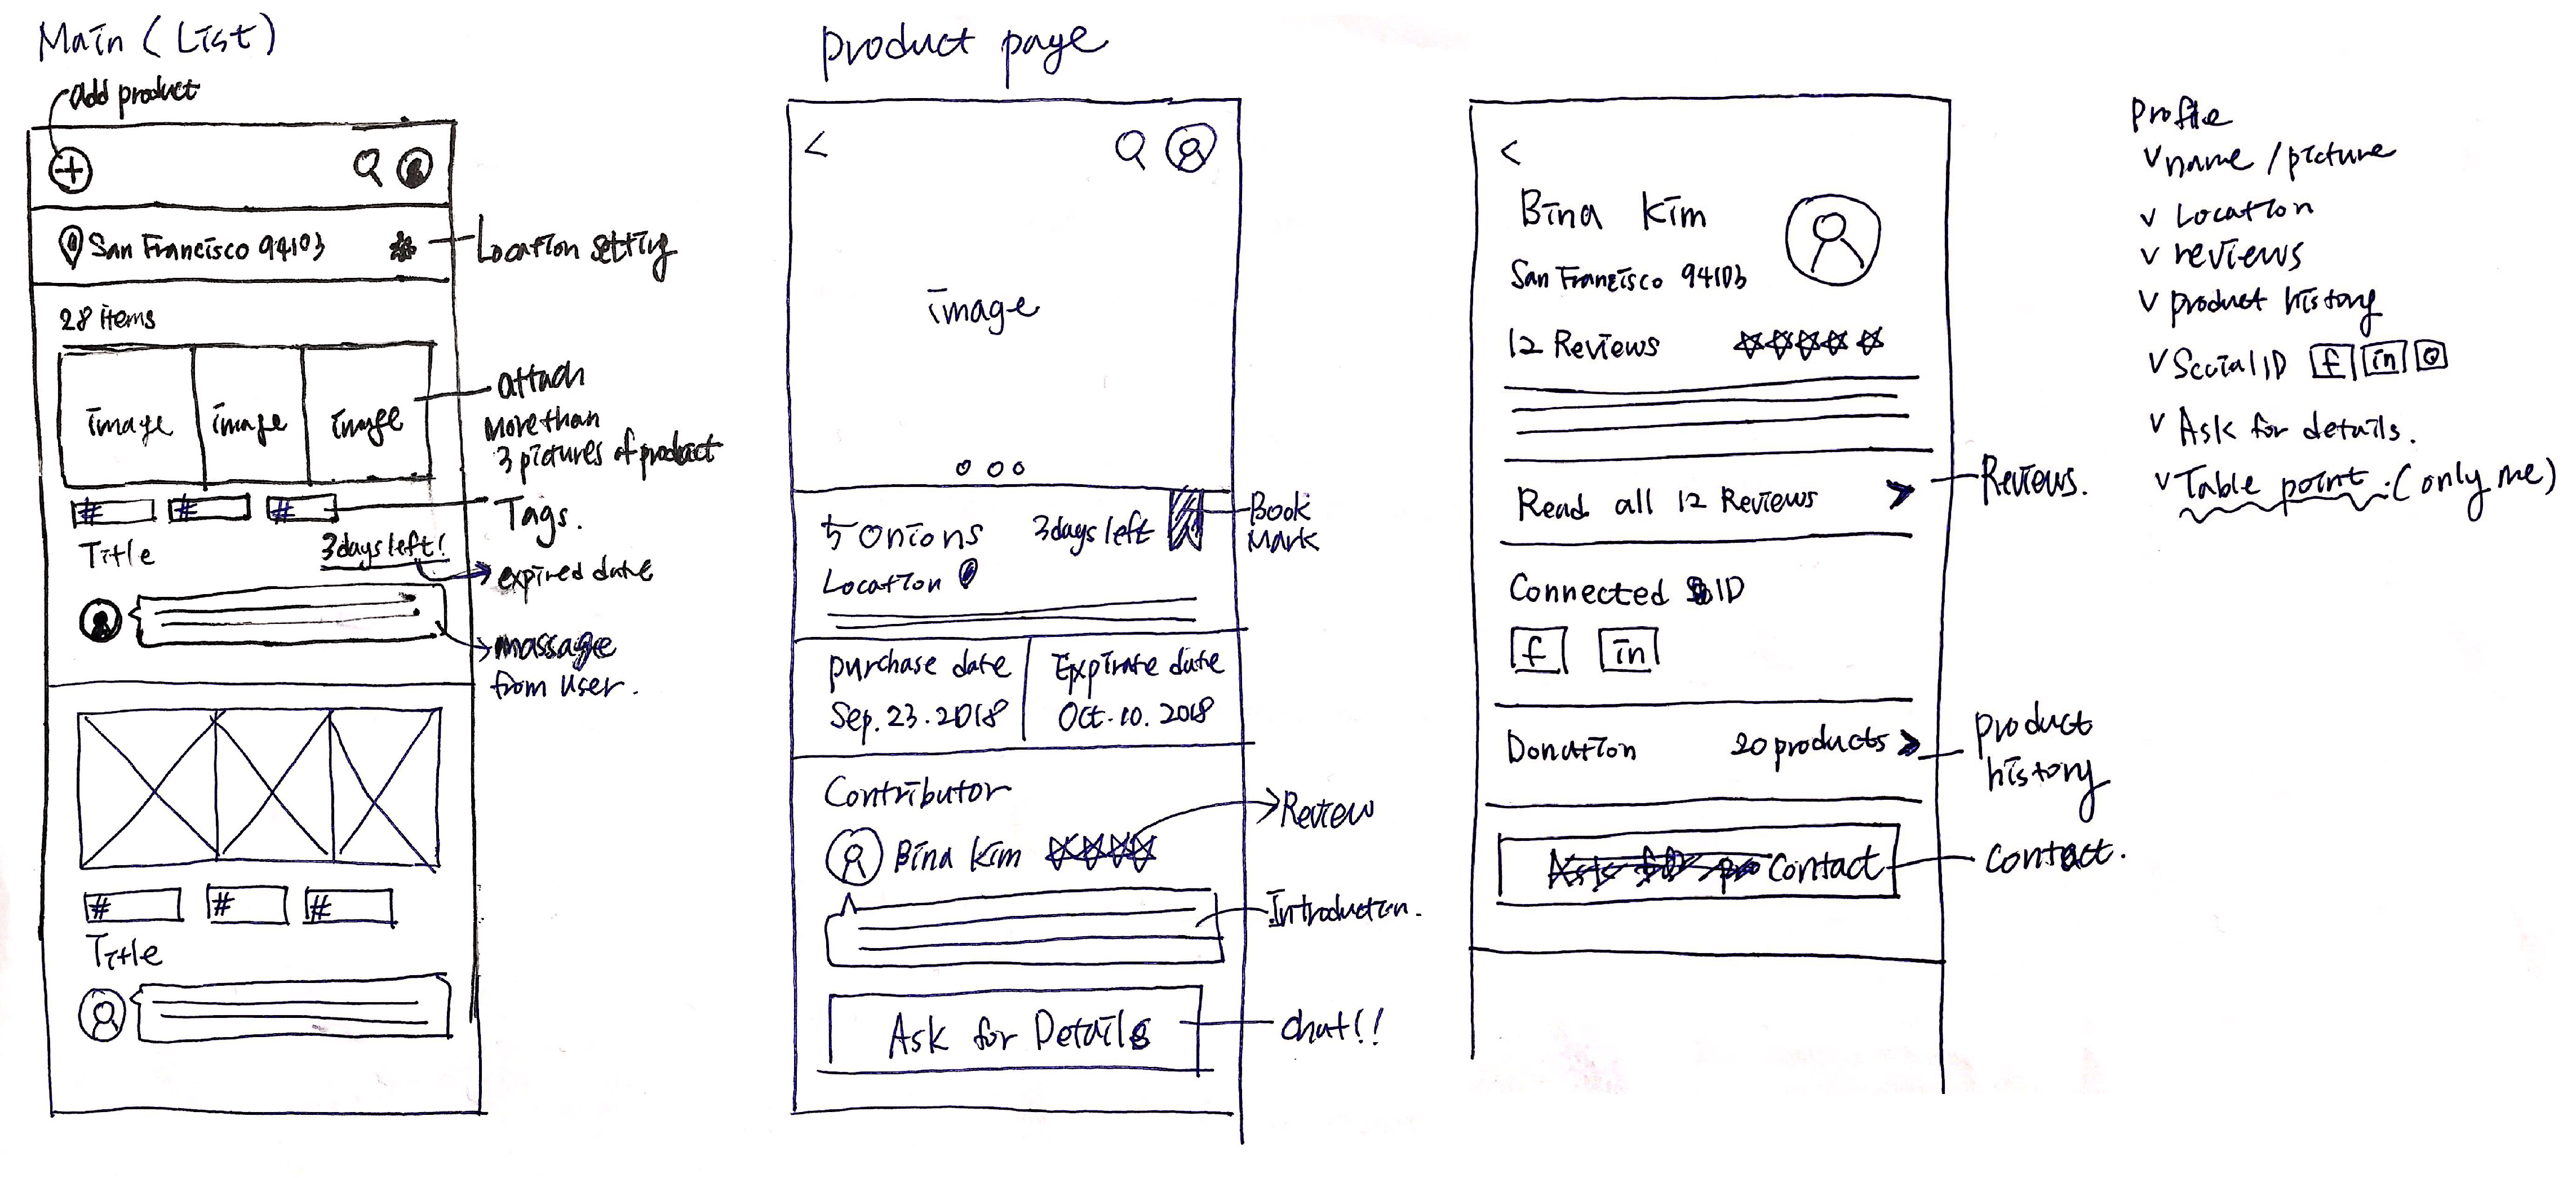 Main (List)
add product
San Francisco 94103
Location setting
28 items
image image image
attach
more than
3 pictures of product
# # #
Tags.
Title
3 days left!
expired date
massage
from user.
# # #
Title
product page
<
image
5 Onions
3 days left
Book
Mark
Location
purchase date
Sep. 23. 2018
Expirate date
Oct. 10. 2018
Contributor
Bina Kim
Review
Introduction.
Ask for Details
chat!!
<
Bina Kim
San Francisco 94103
12 Reviews
Read all 12 Reviews >
Reviews.
Connected ID
f in
Donation 20 products >
product
history
Contact
contact.
Profile
v name / picture
v Location
v reviews
v product history
v Social ID f in
v Ask for details.
v Table point. (only me)